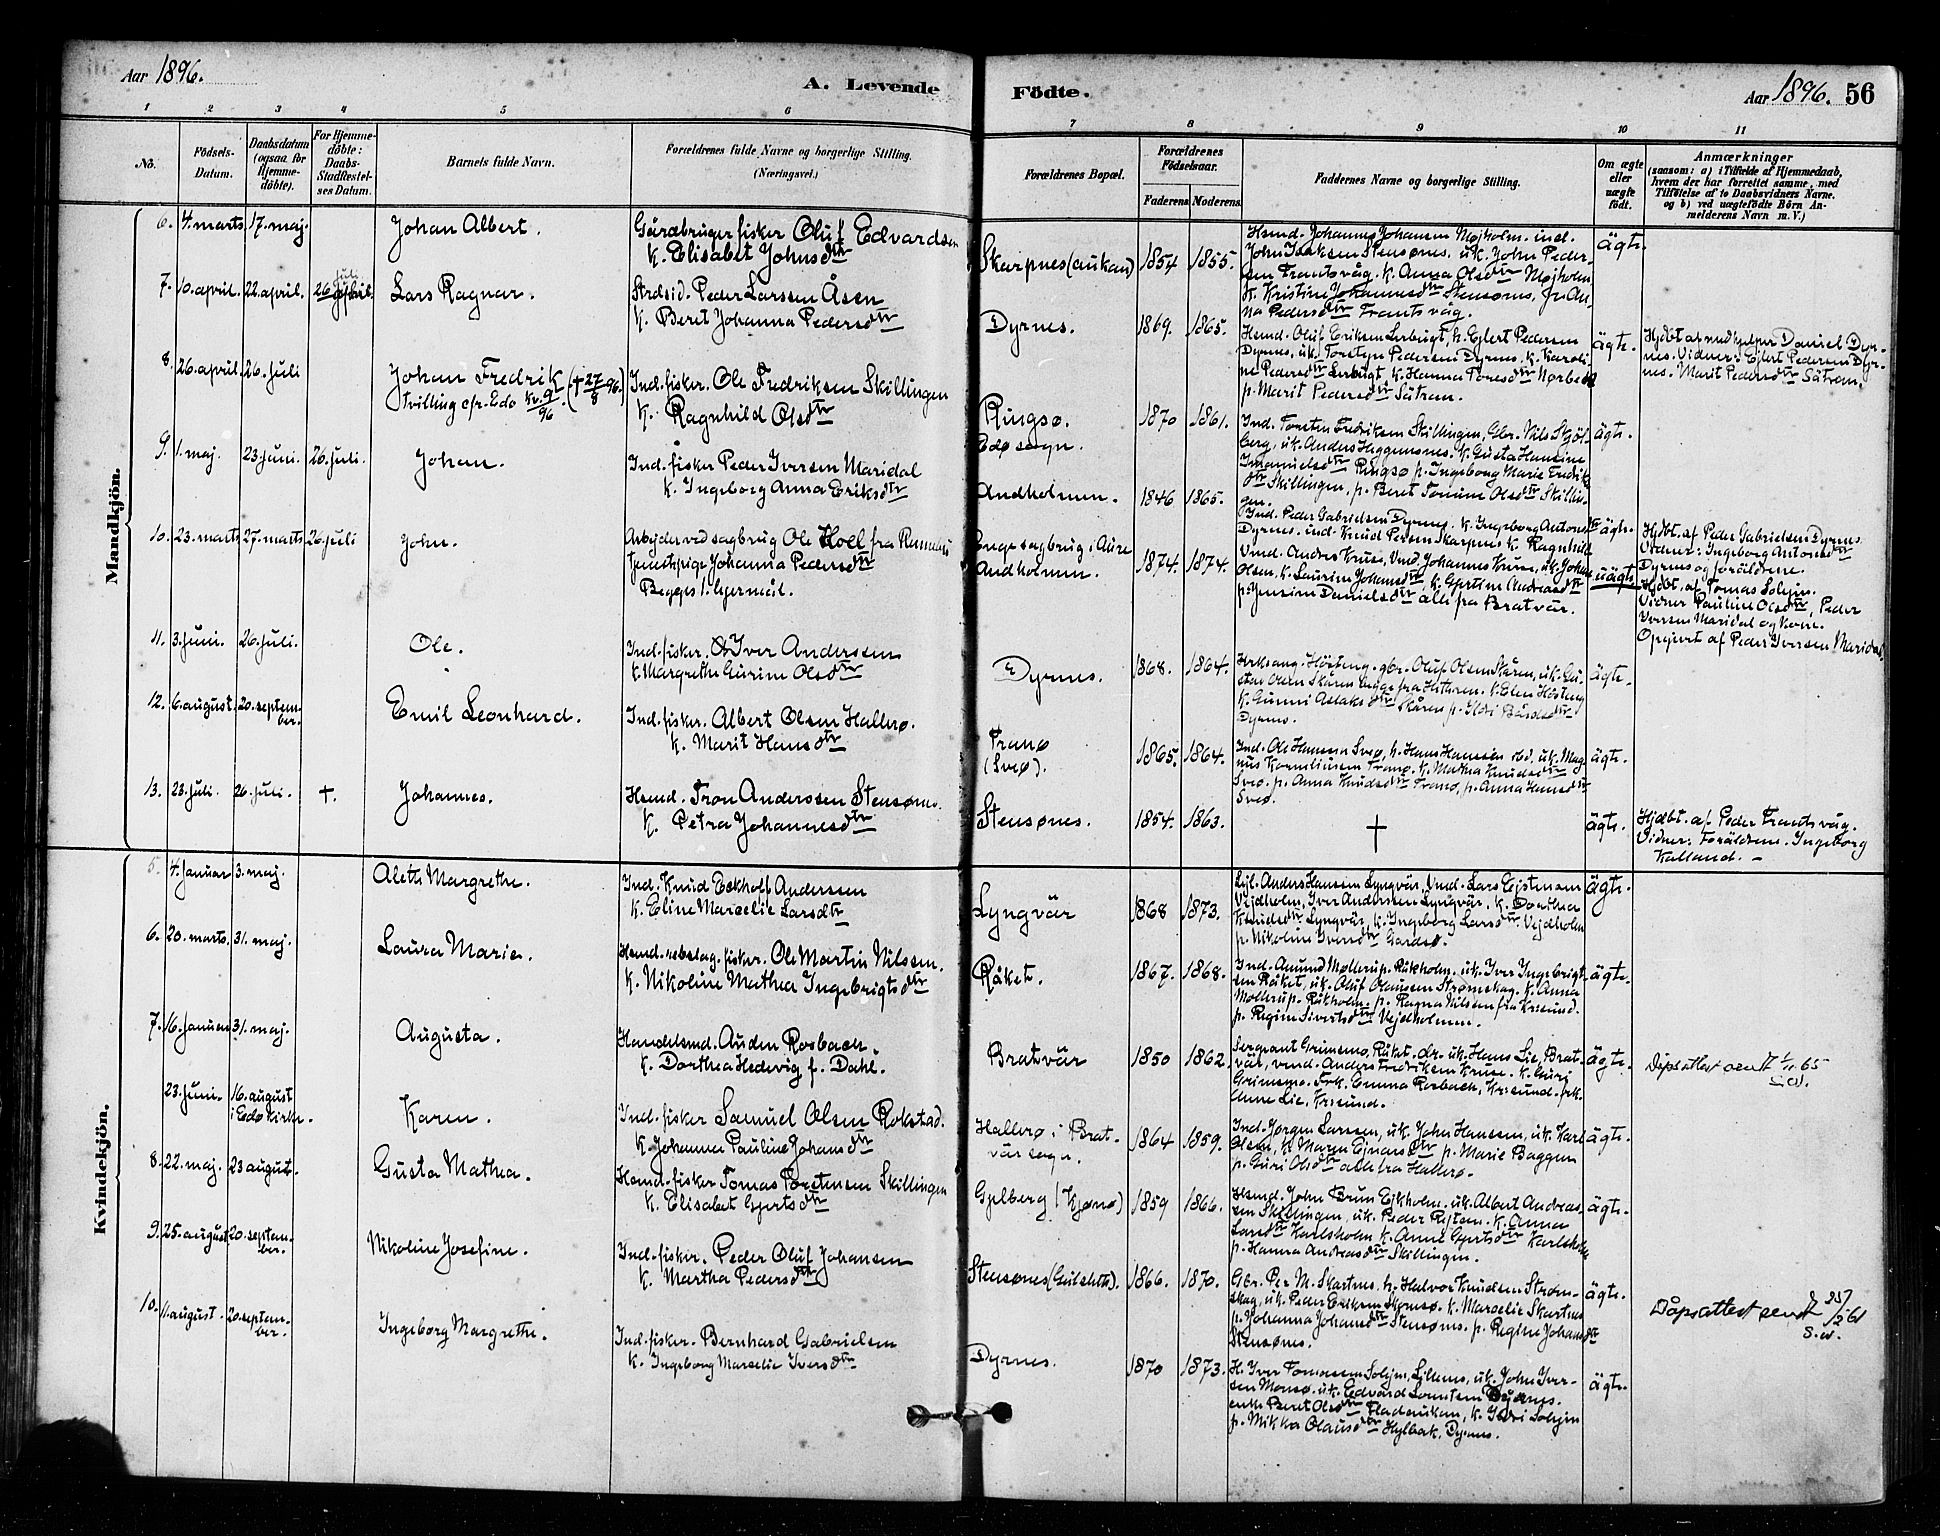 Aar 1896.
A. Levende
Födte.
Aar 1896. 56
1 2 3 4 5 6 7 8 9 10 11
No.
Födsels-
Datum.
Daabsdatum
(ogsaa for
Hjemme-
döbte).
For Hjemme-
döbte:
Daabs-
Stadfæstel-
ses Datum.
Barnets fulde Navn.
Forældrenes fulde Navne og borgerlige Stilling.
(Næringsvei.)
Forældrenes Bopæl.
Forældrenes
Födselsaar.
Faderens Moderens
Faddernes Navne og borgerlige Stilling.
Om ægte
eller
uægte
födt.
Anmærkninger
(saasom: a) i Tilfælde af Hjemmedaab,
hvem der har forrettet samme, med
Tilföielse af to Daabsvidners Navne,
og b) ved uægtefödte Börn An-
melderens Navn m. V.)
Mandkjön.
6. 4. marts 17. maj. Johan Albert. Gårdbruger fisker Oluf Edvardsen
k. Elisabet Johnsdtr
Skarpnes (aukan) 1854 1855. ägte.
Hsmd. Johannes Johansen Møjholm. ind.
John Isaksen Stensønes. uk. John Peder-
sen Frantsvåg. k. Anna Olsdtr Møjholm
k. Kristine Johannesdtr Stensønes,
na Pedersdtr Frantsvåg.
7. 10. april. 22. april. 26 juli Lars Ragnar. Strdsid. Peder Larssen Åsen
k. Beret Johanna Pedersdtr
Dyrnes. 1869. 1865. ägte.
Hsmd. Oluf Eriksen Lerbugt, h. Ejlert Pedersen
Dyrnes, uk. Torstejn Pedersen Dyrnes, k. Karoli-
ne Pedersdtr Lerbugt, k. Hanna Toresdtr Nørbech
p. Marit Pedersdtr Sätran.
Hjdbt af nødhjelper Daniel Dyr-
nes. Vidner: Ejlert Pedersen Dyr-
nes. Marit Pedersdtr Sätrem.
8. 26. april. 26. juli Johan Fredrik († 27/8 96.)
tvilling cfr. Edø Kv. 9/96.
Ind. fisker. Ole Fredriksen Skillingen
k. Ragnhild Olsdtr
Ringsø.
Edøsogn. 1870 1861. ägte.
Ind. Torsten Fredriksen Skillingen, Gbr. Nils Skjöl-
berg, uk. Anders Heggemsnes. k. Gusta Hansine
Imanuelsdtr Ringsø p. Ingeborg Marie Fredriks
dtr Skillingen, p. Beret Tomine Olsdtr Skillin-
gen.
9. 1. maj. 23. juni. 26. juli. Johan. Ind. fisker Peder Iversen Maridal
k. Ingeborg Anna Eriksdtr
Andholmen. 1846 1865. ägte.
Ind. Peder Gabrielsen Dyrnes. k. Ingeborg Antonsdtr
Dyrnes. ind. Knud Persen Skarpnes k. Ragnhild
Hjdbt. af Peder Gabrielsen Dyrnes
Vidner: Ingeborg Antonsdtr
Dyrnes og foräldrene.
10. 23. marts 27. marts 26. juli John. Arbejder ved sagbrug Ole Hoel fra
tjenestepige Johanna Pedersdtr
Begges 1. lejermål.
Enge sagbrug i Aure
Andholmen. 1874. 1874. uägte.
Vmd. Andres Kruse, Vmd Johannes Kruse, uk. Johan
Olsen, k. Laurine Johansdtr k. Gjertine Andreasdtr
p. Jensine Danielsdtr alle fra Bratvär.
Hjdbt. af Tomas Solejm.
Vidner Pauline Olsdtr, Peder
Iversen Maridal og kone.
Opgivet af Peder Iversen Maridal.
11. 3. juni. 26. juli. Ole. Ind. fisker. Iver Anderssen
k. Margrethe Gurine Olsdtr
Dyrnes. 1868. 1864. ägte.
Kirksang. Hösteng. gbr. Oluf Olsen Skåren, uk. Gu-
stav Olsen Skåren begge fra Hitteren. k. Elen Hösteng
k. Gunni Aslaksdtr Skåren p. Ildri Bårdsdtr
Dyrnes.
12. 6. august. 20. septem-
ber. Emil Leonhard. Ind. fisker. Albert Olsen Hallerø.
k. Marit Hansdtr
Tranø
(Sveø). 1865. 1864. ägte.
Ind. Ole Hanssen Sveø, h. Hans Hanssen ibd. uk. Mag-
nus Korneliussen Tranø. k. Mathea Knudsdtr
Sveø. p. Anna Knudsdtr Tranø, p. Anna Hansdtr
Sveø.
13. 23. juli. 26. juli. †. Johannes. Hsmd. Tron Anderssen Stensønes
k. Petra Johannesdtr
Stensønes. 1854. 1863. † ägte.
Hjdbt. af Peder Frantsvåg.
Vidner: Foräldrene. Ingeborg
Kalland. -
Kvindekjön.
5. 4. januar 3. maj. Aleth Margrethe. Ind. Knud Eckhoff Anderssen
k. Eline Marselie Larsdtr
Lyngvär 1868 1873. ägte.
Lejl. Anders Hansen Lyngvär, Vmd. Lars Ejstmann
Vejdholm, Iver Anderssen Lyngvär, k. Dorthea
Knudsdtr Lyngvär, k. Ingeborg Larsdtr Vejdholm
p. Nikoline Iversdtr Gardsø.
6. 20. marts. 31. maj. Laura Marie. Hsmd. rebslag. fisker. Ole Martin Nilssen.
k. Nikoline Mathea Ingebrigtsdtr
Råket. 1867. 1868. ägte.
Ind. Amund Møllerup. Råkholm. uk. Iver Ingebrigt-
sen Råket, uk. Oluf Olaussen Strømskag. k. Anna
Møllerup. Råkholm. p. Ragna Nilssen fra Krsund.
p. Regine Sivertsdtr Vejdholmen.
7. 16. januar 31. maj. Augusta. Handelsmd. Auden Rosbach.
k. Dorthea Hedevig f. Dahl.
Bratvär 1850 1862. ägte.
Sergeant Grimsmo, Råket. dr. uk. Hans Lie, Brat-
vär, vmd. Anders Fredriksen Kruse. k. Guri
Grimsmo. Frk. Emma Rosbach, Krsund. frk.
Anne Lie, Krsund.
Dåpsattest sendt 65
23. juni. 16. august
i Edø kirke. Karen. Ind. fisker Samuel Olsen Rokstad.
k. Johanna Pauline Johansdtr
Hallerø i Brat-
vär sogn. 1864 1859. ägte.
Ind. Jørgen Larssen, uk. John Hanssen, uk. Karl
Olsen, k. Maren Ejnarsdtr p. Marie Baggen
p. Guri Olsdtr alle fra Hallerø.
8. 22. maj. 23 august. Gusta Mathea. Hsmd. fisker Tomas Torstensen Skillingen
k. Elisabet Gjertsdtr
Gjelberg (Kjønø) 1859 1866. ägte.
Hsmd. John Brun Ejkholm. uk. Albert Andreas-
sen Skillingen, uk. Peder Røsten. k. Anna
Larsdtr Karlsholm k. Anne Gjertsdtr Karlsholm
p. Hanna Andreasdtr Skillingen.
9. 25. august 20. septem-
ber. Nikoline Josefine. Ind. fisker. Peder Oluf Johansen
k. Martha Pedersdtr
Stensønes (Gulsleth). 1866. 1870. ägte.
Gbr. Per M. Skartnes. h. Halvor Knudsen Strøm-
skag, uk. Peder Eriksen k. Marselie Skartnes
p. Johanna Johansdtr Stensønes. p. Regine Johansdtr
Stensønes.
Dåpsattest sendt
S.W.
10. 11. august. 20. septem-
ber. Ingeborg Margrethe. Ind. fisker. Bernhard Gabrielsen
k. Ingeborg Marselie Iversdtr
Dyrnes. 1870 1873. ägte.
H. Iver Tomassen Solejm, uk. John Iver-
sen Monsø. uk. Edvard Dyrnes.
enke Beret Olsdtr k. Ildri Solejm
p. Mikka Olausdtr Hylbak, Dyrnes.